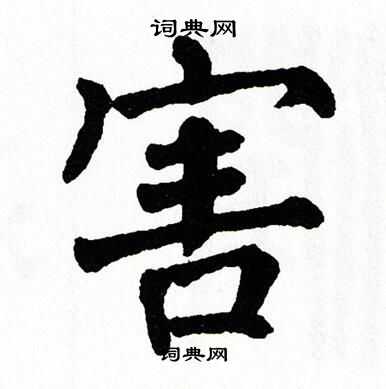 词典网
害
词典网